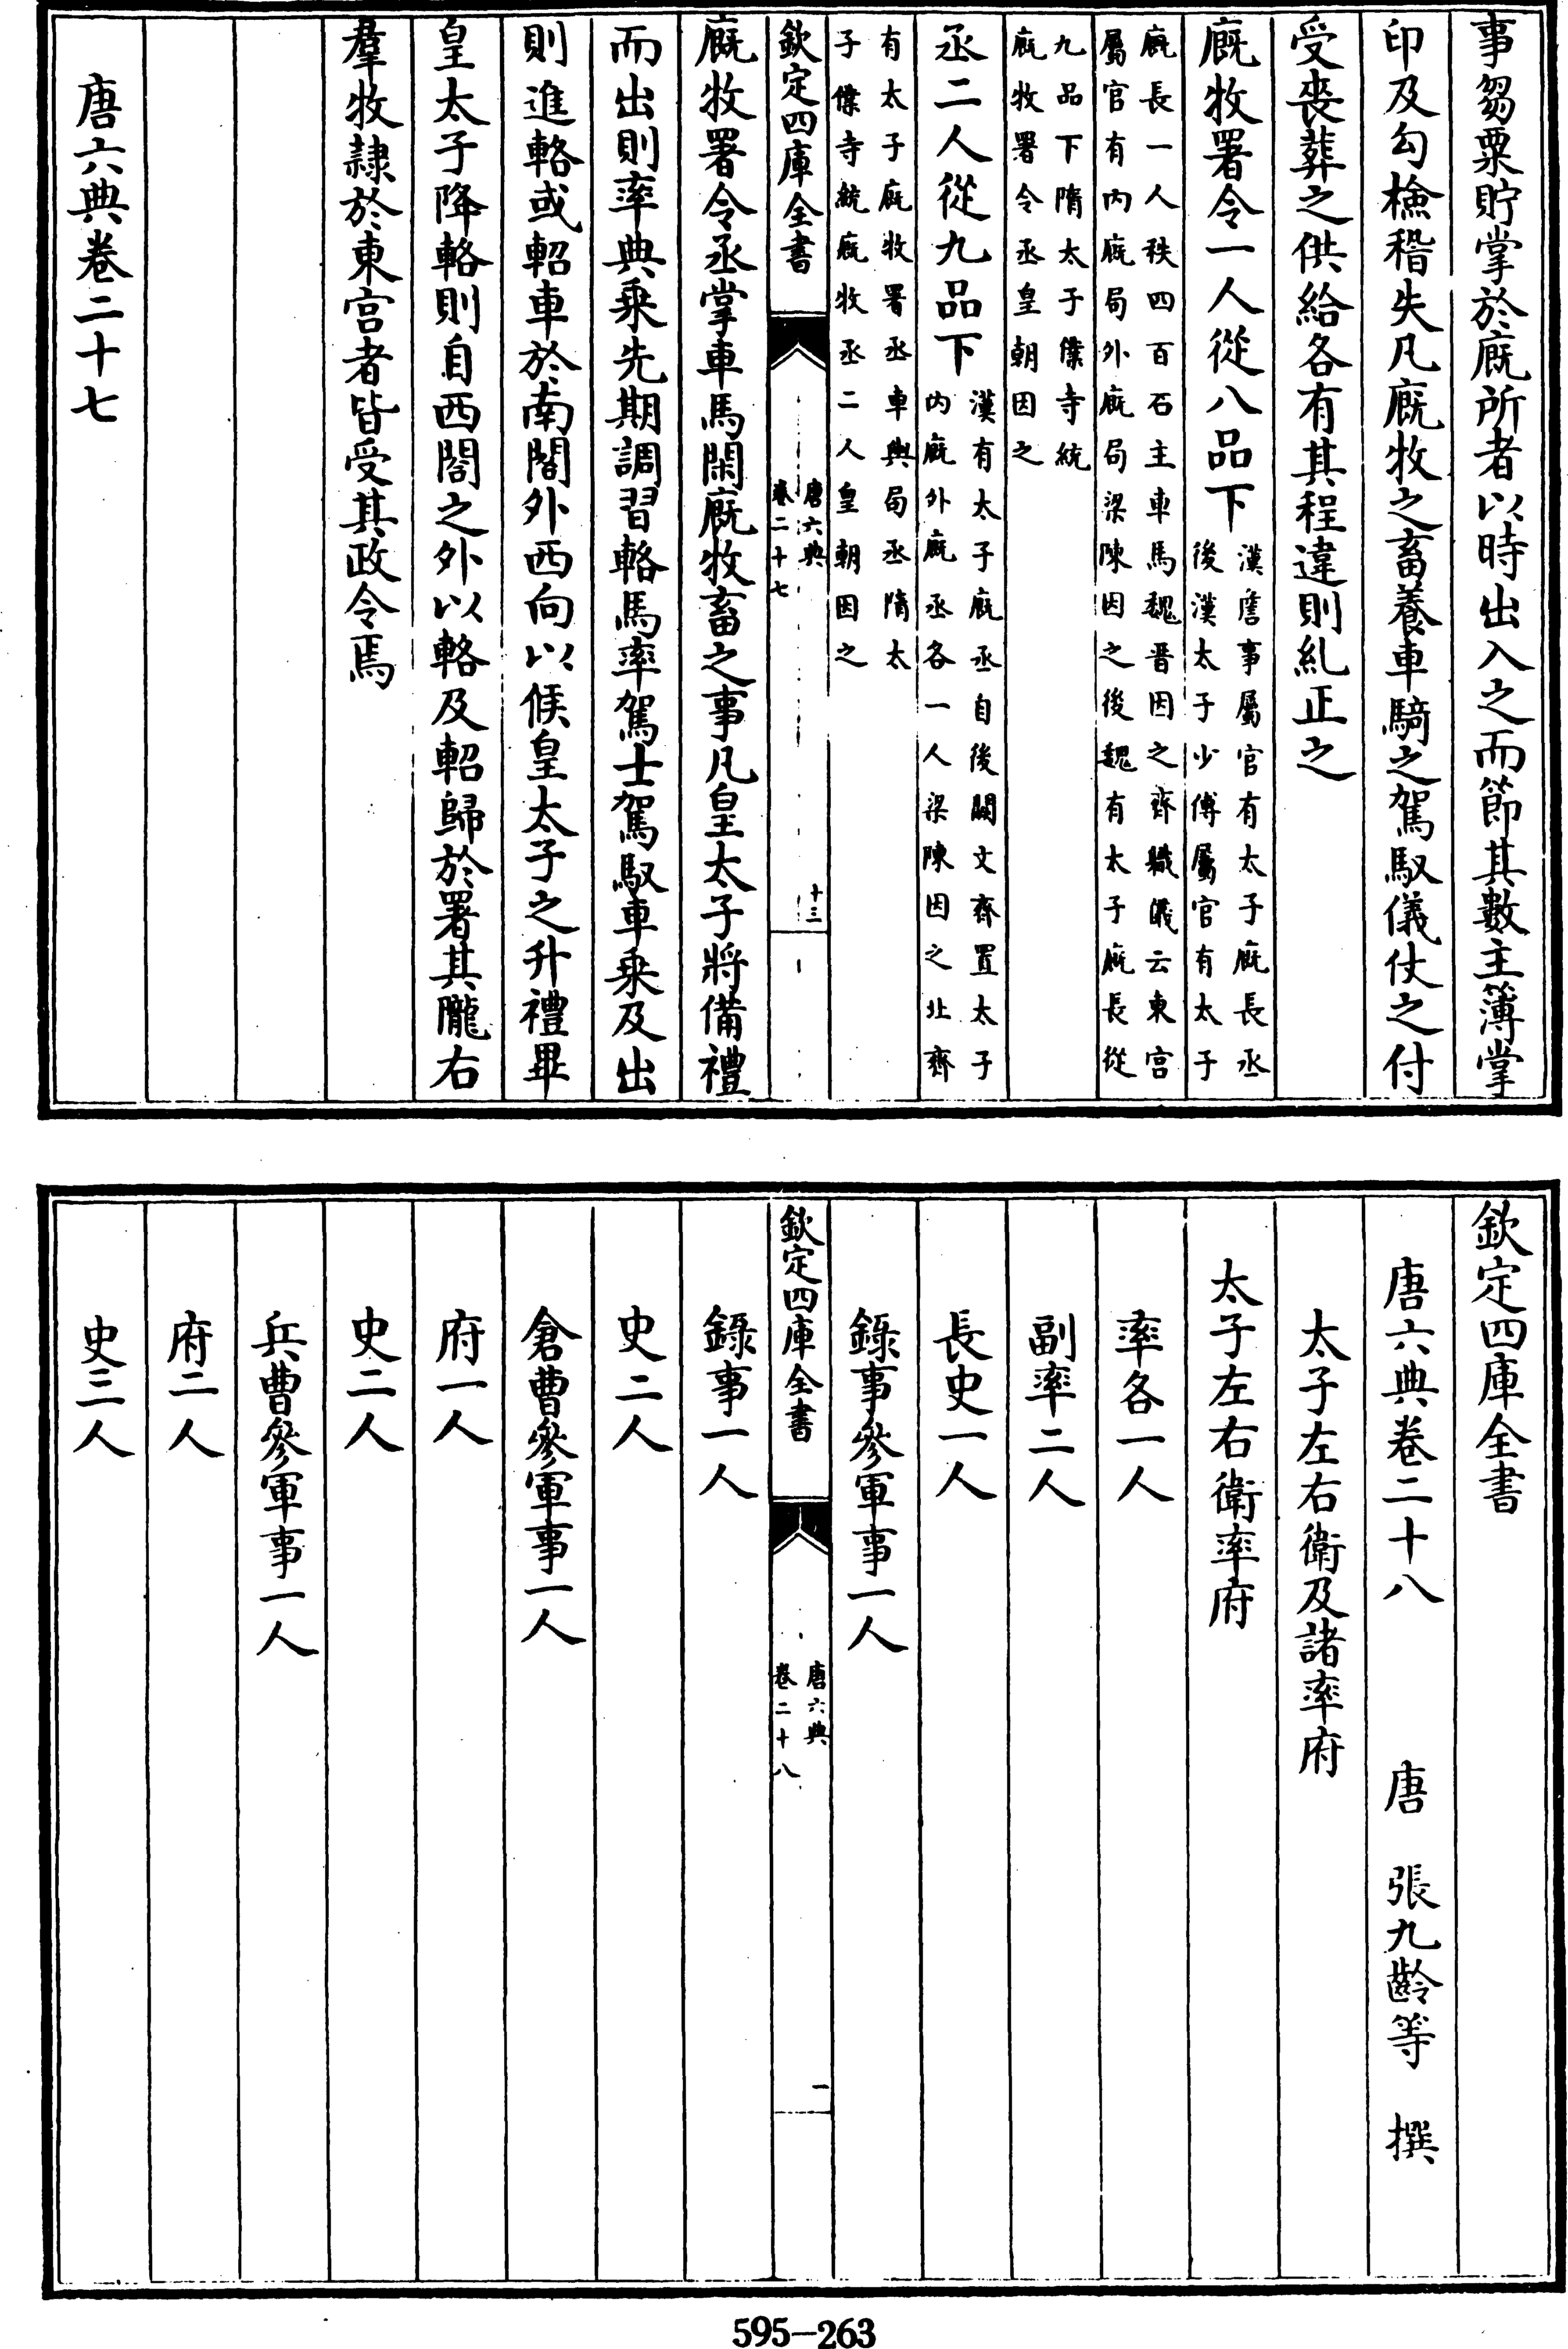 事芻粟貯掌於廐所者以時出入之而節其數主簿掌
印及勾檢稽失凡廐牧之畜養車騎之駕馭儀仗之付
受喪葬之供給各有其程違則糺正之
廐牧署令一人從八品下漢詹事屬官有太子廐長丞
後漢太子少傅屬官有太子
廐長一人秩四百石主車馬魏晉因之齊職儀云東宮
屬官有內廐局外廐局梁陳因之後魏有太子廐長從
九品下隋太子僕寺統
廐牧署令丞皇朝因之
丞二人從九品下漢有太子廐丞自後闕文齊置太子
內廐外廐丞各一人梁陳因之北齊
有太子廐牧署丞車輿局丞隋太
子僕寺統廐牧丞二人皇朝因之
欽定四庫全書
唐六典
卷二十七
十三
廐牧署令丞掌車馬閑廐牧畜之事凡皇太子將備禮
而出則率典乘先期調習輅馬率駕士駕馭車乘及出
則進輅或軺車於南閤外西向以候皇太子之升禮畢
皇太子降輅則自西閤之外以輅及軺歸於署其隴右
羣牧隷於東宮者皆受其政令焉
唐六典卷二十七
欽定四庫全書
唐六典卷二十八 唐 張九齡等 撰
太子左右衛及諸率府
太子左右衛率府
率各一人
副率二人
長史一人
錄事參軍事一人
欽定四庫全書
唐六典
卷二十八
一
錄事一人
史二人
倉曹參軍事一人
府一人
史二人
兵曹參軍事一人
府二人
史三人
595-263